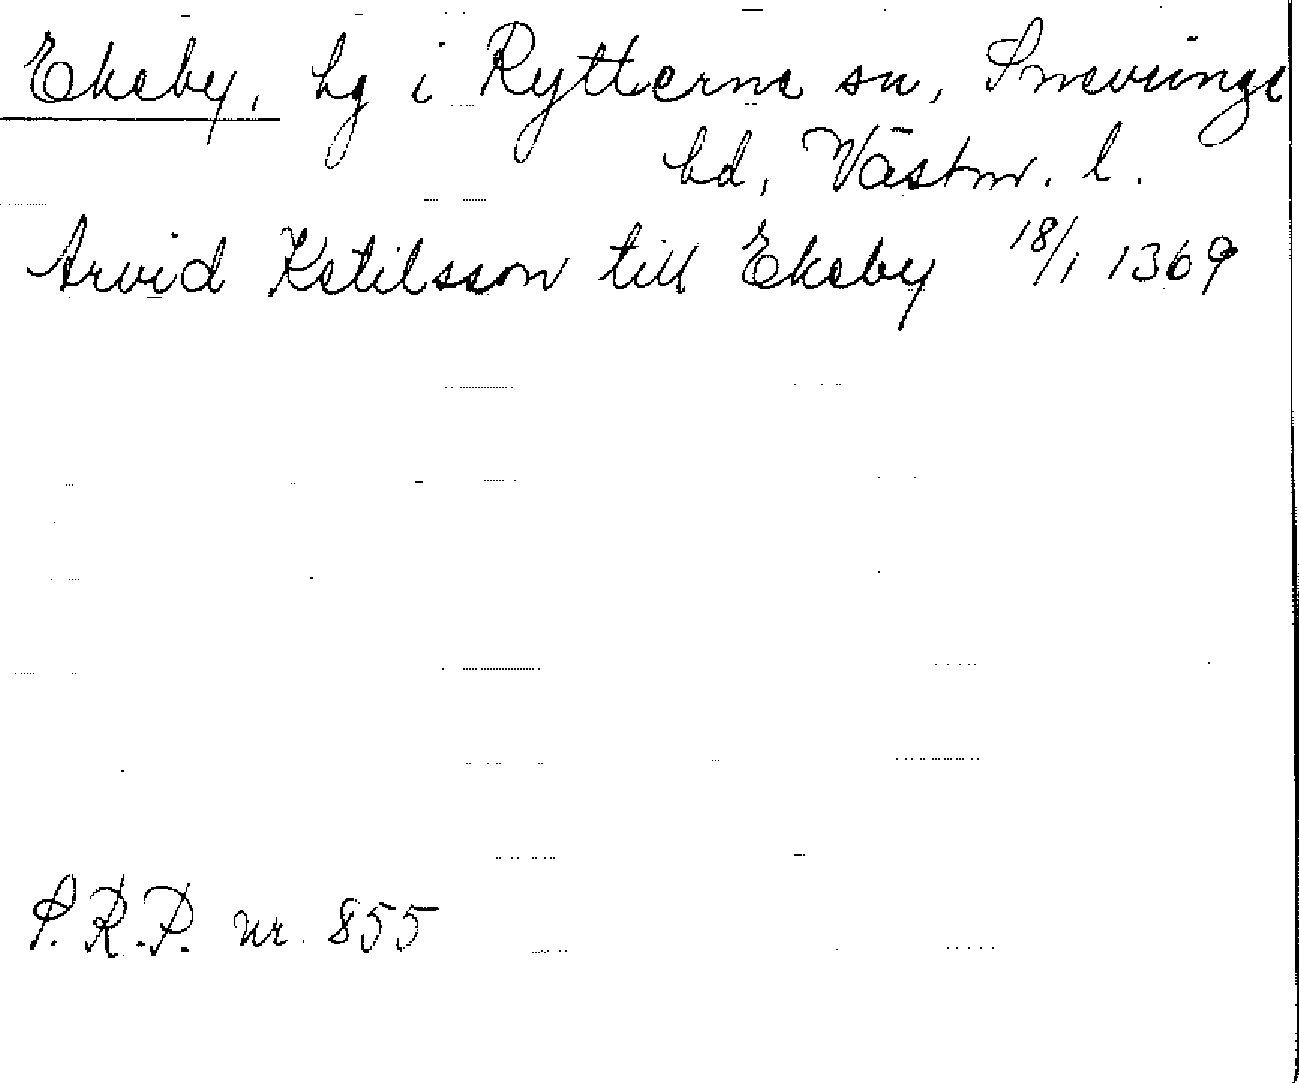 Ekeby, hg i Rytterne sn, Snevringe
hd, Västm. l.
Arvid Ketilsson till Ekeby 18/1 1369
S.R.P. nr. 855